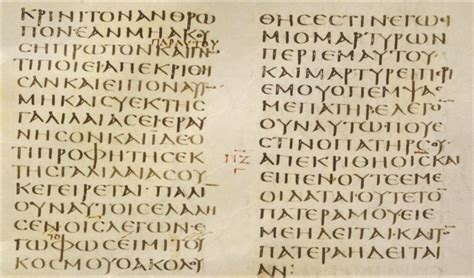 ΚΡΙΝΙΤΟΝΑΝΘΡΩ
ΠΟΝΕΑΝΜΗΑΚΟΥ
ΠΑΡΑΥΤΟΥ
ϹΗΠΡΩΤΟΝΚΑΙΓΝΩ
ΤΙΠΟΙΕΙΑΠΕΚΡΙΘΗ
ϹΑΝΚΑΙΕΙΠΟΝΑΥΤΩ
ΜΗΚΑΙϹΥΕΚΤΗϹ
ΓΑΛΙΛΑΙΑϹΕΙΕΡΑΥ
ΝΗϹΟΝΚΑΙΪΔΕΟ
ΤΙΠΡΟΦΗΤΗϹΕΚ
ΤΗϹΓΑΛΙΛΑΙΑϹΟΥ
ΚΕΓΕΙΡΕΤΑΙΠΑΛΙ
ΟΥΝΑΥΤΟΙϹΕΛΑΛΗ
ϹΕΝΟΙϹΛΕΓΩΝΕ
ΤΟ
ΓΩΦΩϹΕΙΜΙΤΟΥ
ΚΟϹΜΟΥΟΑΚΟΛΟΥ
ΘΗϹΕϹΤΙΝΕΓΩΕΙ
ΜΙΟΜΑΡΤΥΡΩΝ
ΠΕΡΙΕΜΑΥΤΟΥ
ΚΑΙΜΑΡΤΥΡΕΙΠΕΡΙ
ΕΜΟΥΟΠΕΜΨΑϹ
ΜΕΠΑΤΗΡΕΛΕΓΟΝ
ΟΥΝΑΥΤΩΠΟΥΕ
ϹΤΙΝΟΠΑΤΗΡϹΟΥ
ΠΖ
Γ
ΑΠΕΚΡΙΘΗΟΙϹΚΑΙ
ΕΙΠΕΝΟΥΤΕΕΜΕ
ΟΙΔΑΤΑΙΟΥΤΕΤΟΝ
ΠΑΤΕΡΑΜΟΥΕΙΕ
ΜΕΗΔΕΙΤΑΙΚΑΙΤΟΝ
ΠΑΤΕΡΑΗΔΕΙΤΑΙ
ΑΝ